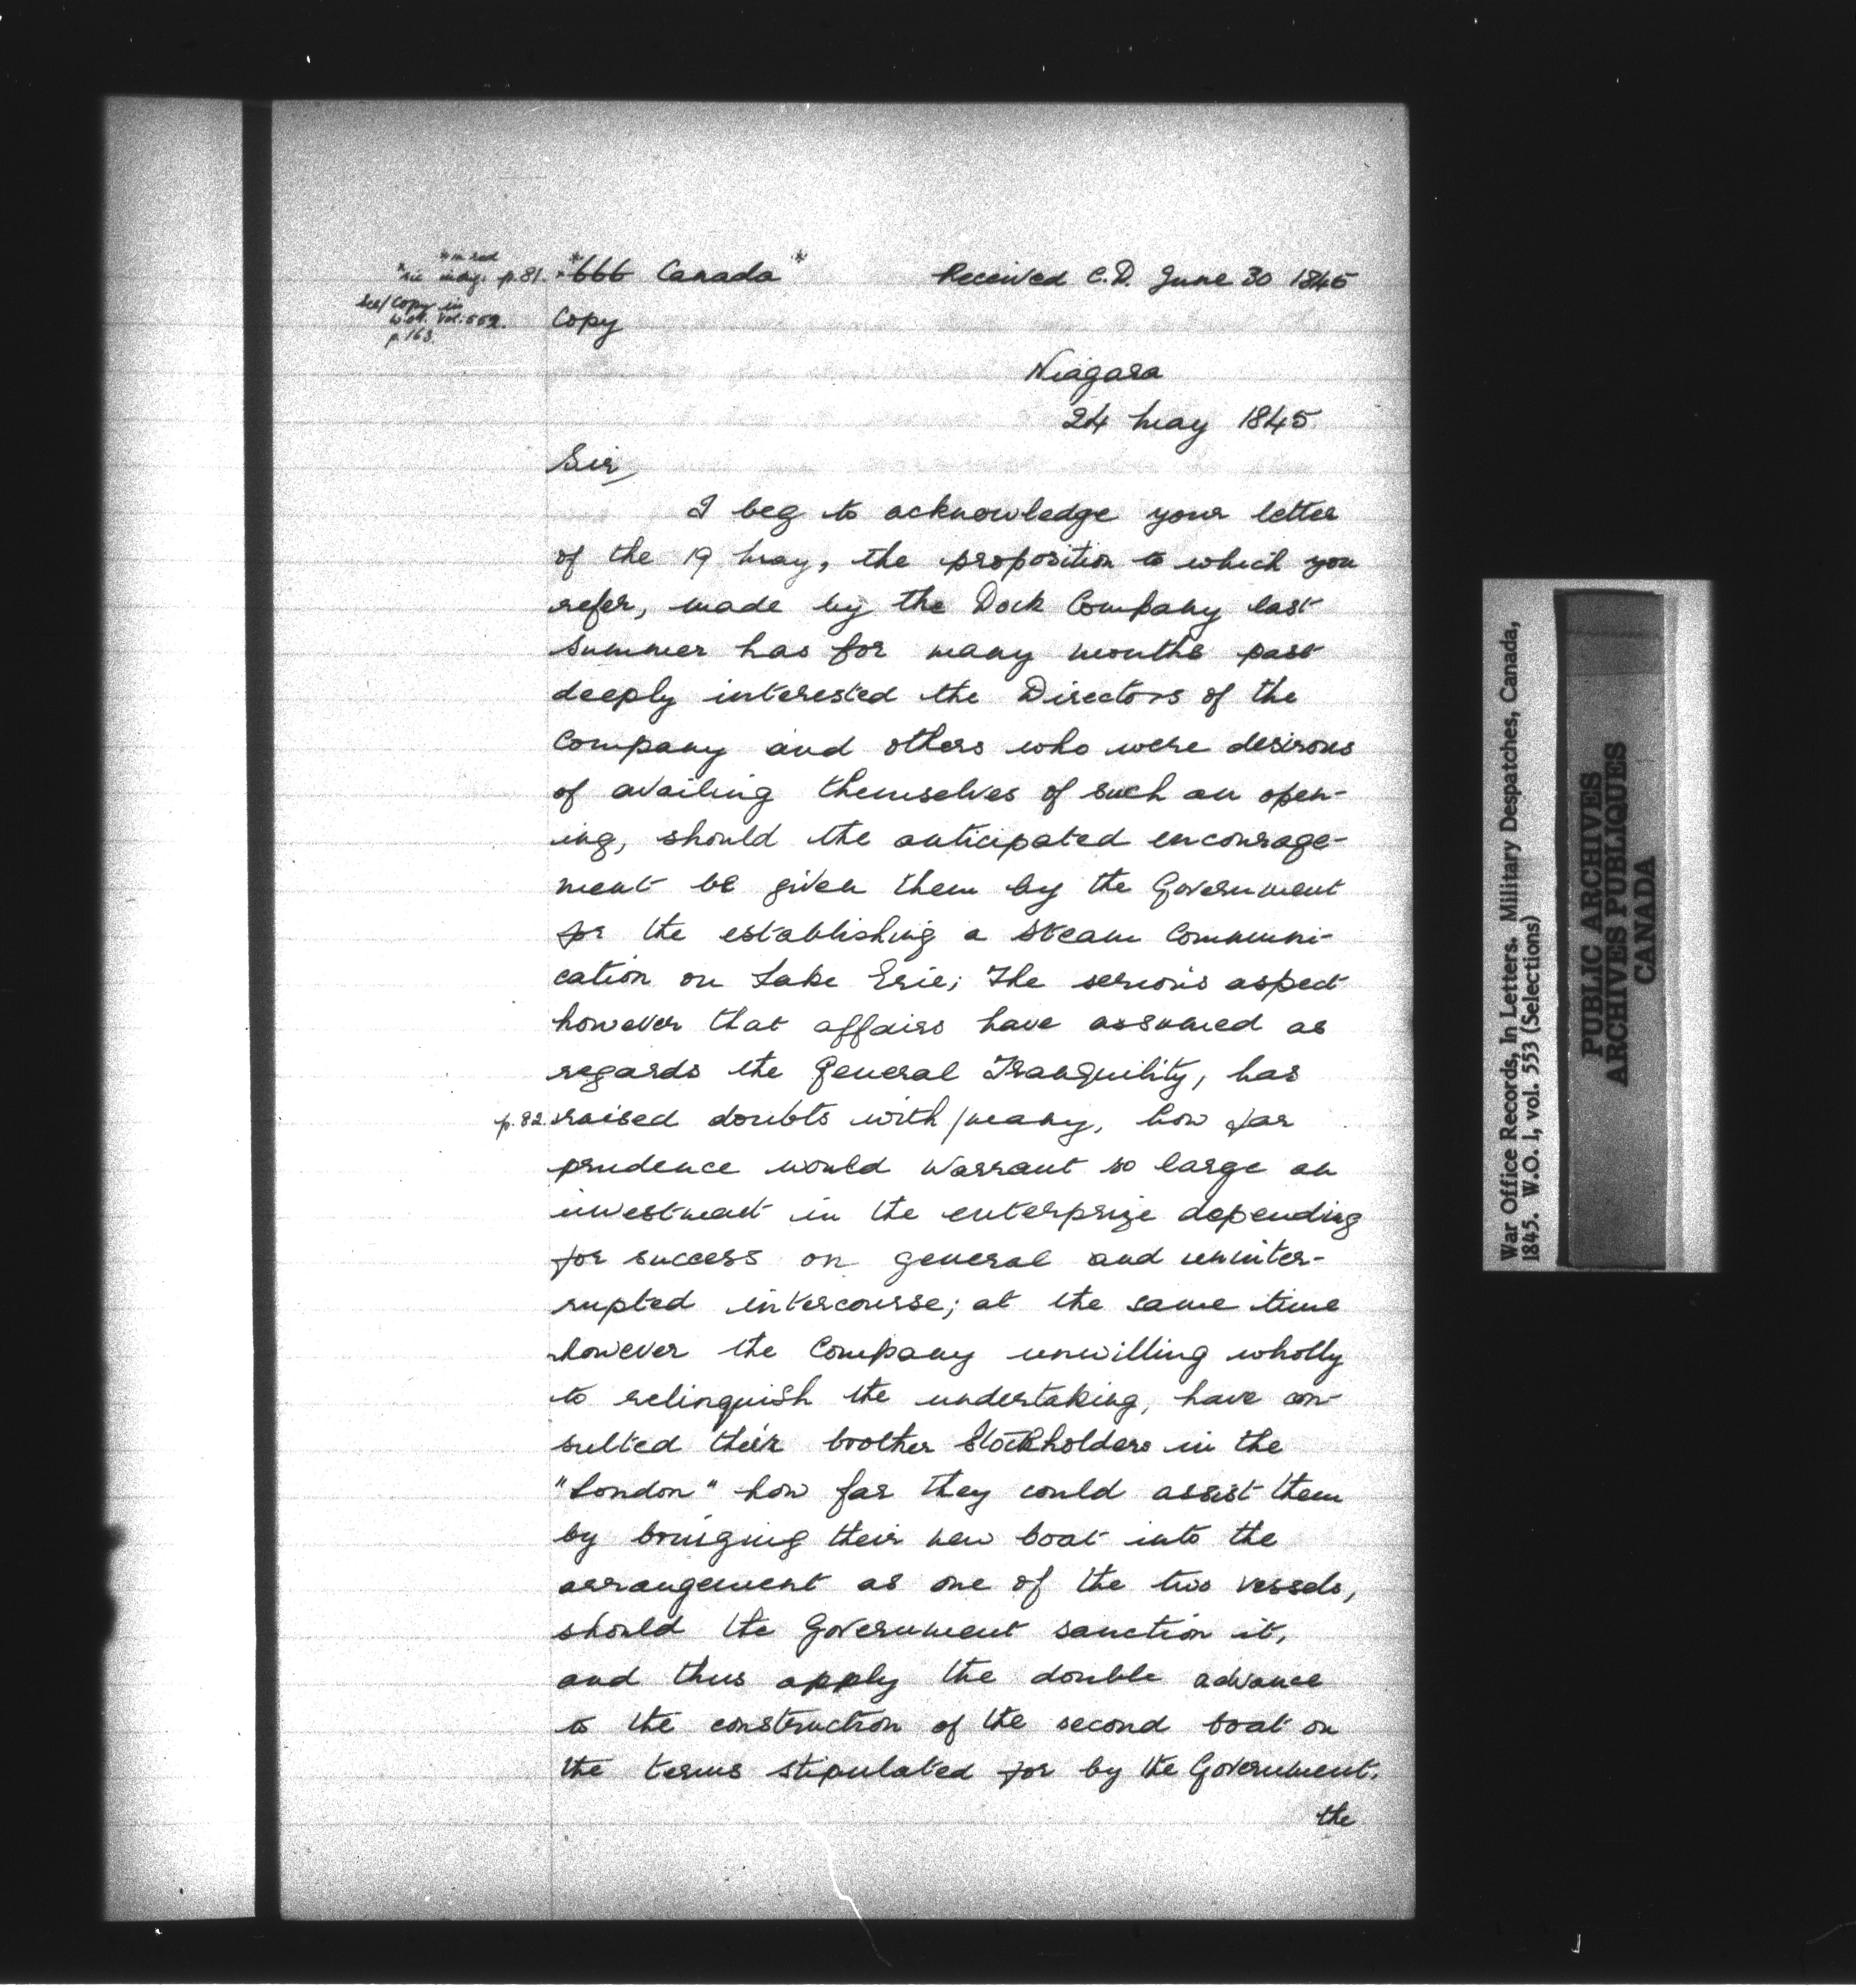 *in red
*in marg. p.81. *666 Canada* Received C.D. June 30 1845
See/Copy in
W.O.1. Vol. 552.
p.163.
Copy
Niagara
24 May 1845
Sir,
I beg to acknowledge your letter
of the 19 May, the proposition to which you
refer, made by the Dock Company last
summer has for many months past
deeply interested the Directors of the
Company and others who were desirous
of availing themselves of such an open-
ing, should the anticipated encourage-
ment be given them by the Government
for the establishing a Steam Communi-
cation on Lake Erie; The serious aspect
however that affairs have assumed as
regards the General Tranquility, has
p.82. raised doubts with/many, how far
prudence would warrant so large an
investment in the enterprize depending
for success on general and uninter-
rupted intercourse; at the same time
however the Company unwilling wholly
to relinquish the undertaking, have con-
sulted their brother Stockholders in the
"London" how far they could assist them
by bringing their new boat into the
arrangement as one of the two vessels,
should the Government sanction it,
and thus apply the double advance
to the construction of the second boat on
the terms stipulated for by the Government.
the
War Office Records, In Letters. Military Despatches, Canada,
1845. W.O. 1, vol. 553 (Selections)
PUBLIC ARCHIVES
ARCHIVES PUBLIQUES
CANADA